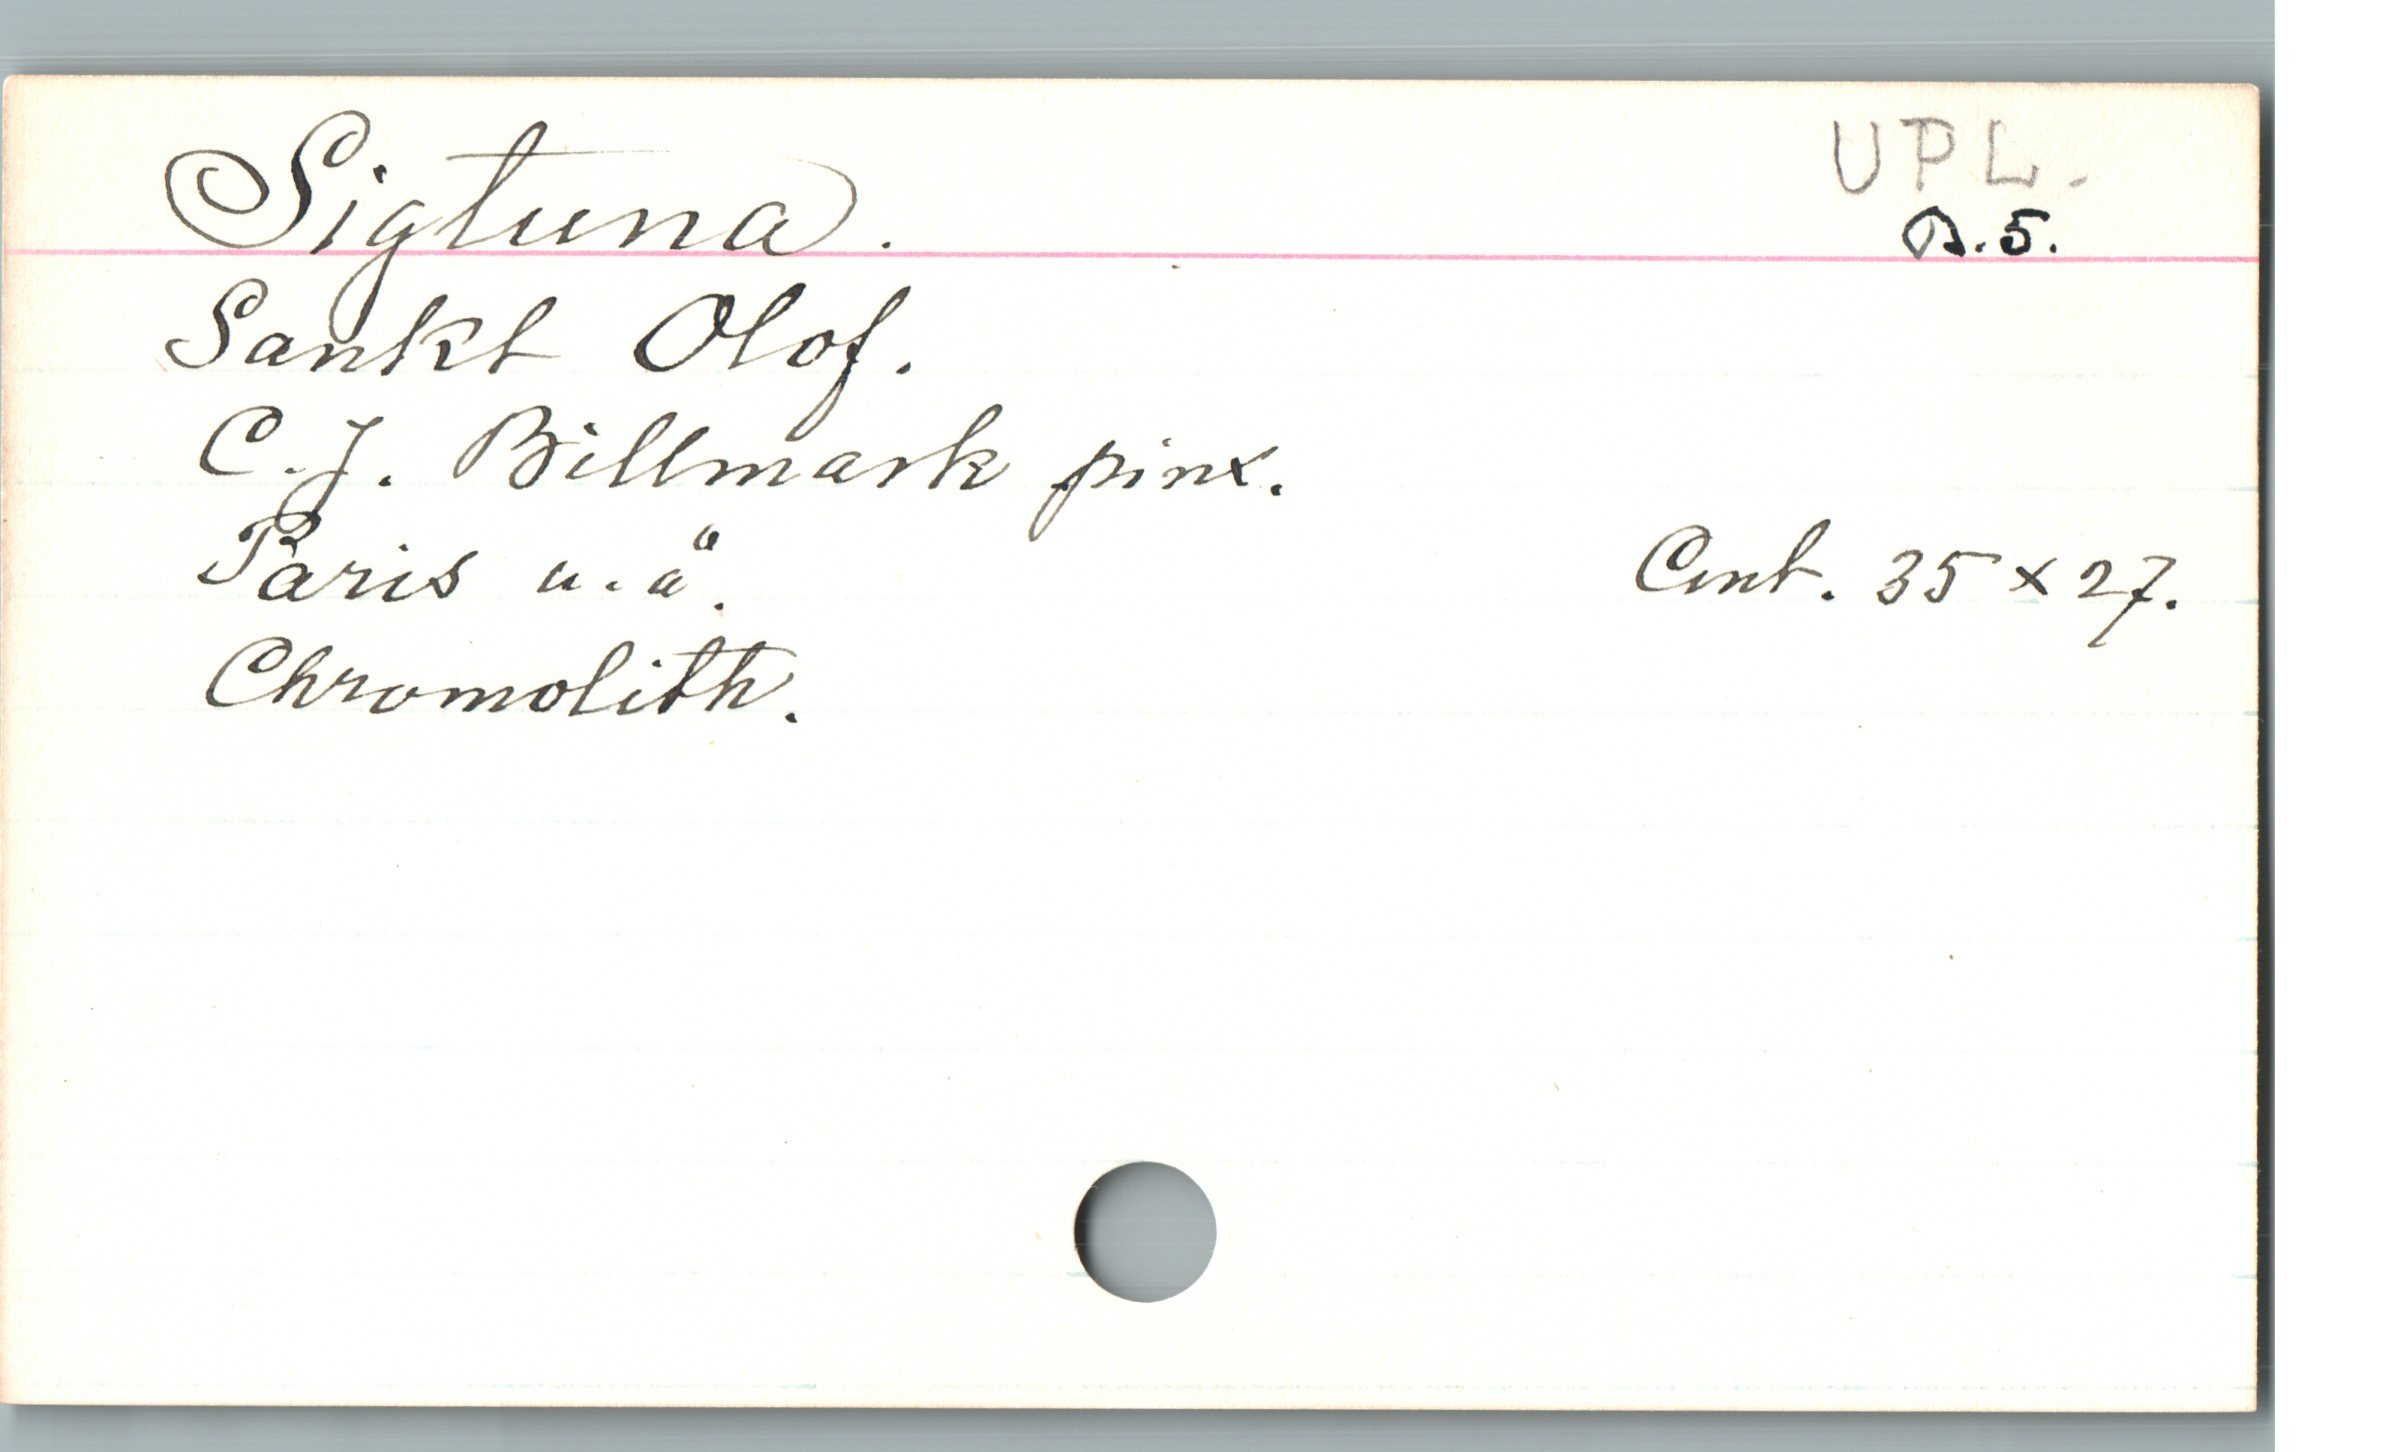 Sigtuna.
UPL.
A.5.
Sankt Olof.
C.J. Billmark pinx.
Paris u.å.
Cent. 35 x 27.
Chromolith.